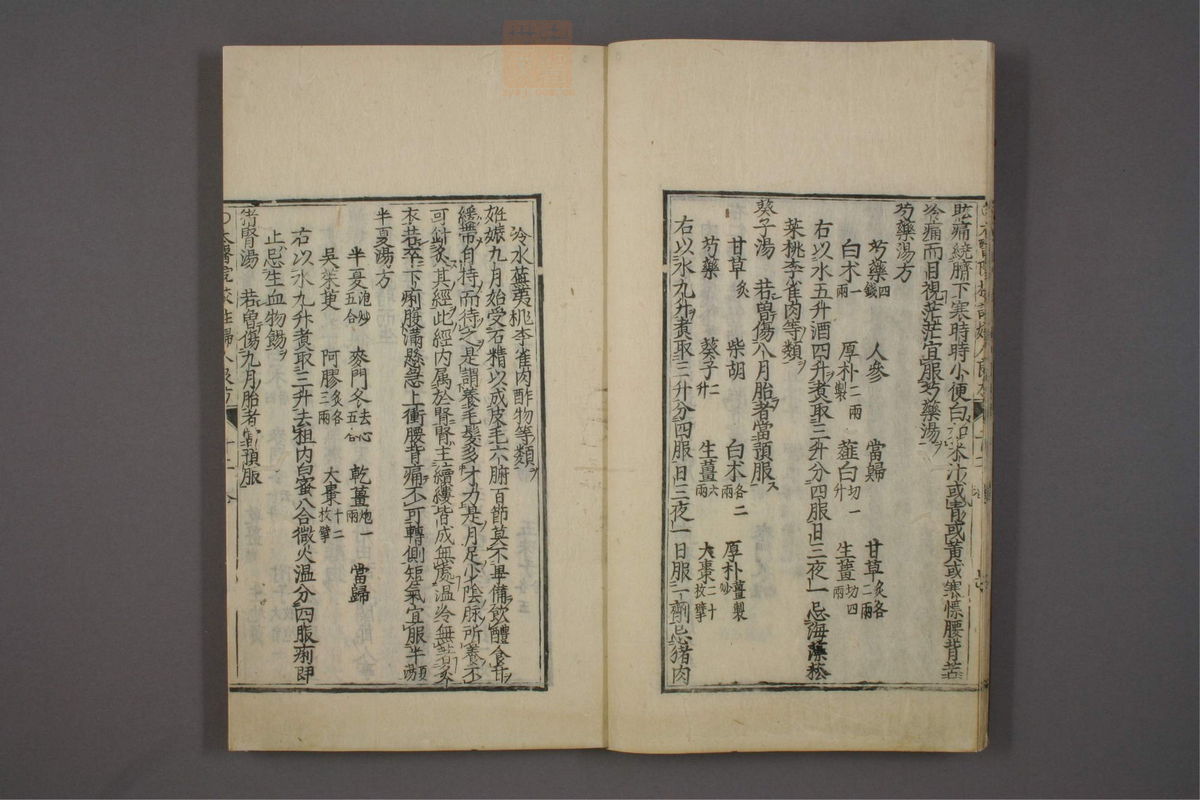 眩痛繞臍下寒時時小便白如米汁或青或黃或寒慄腰背苦
冷痛而目視茫茫宜服芍藥湯
芍藥湯方
芍藥四錢 人參 當歸 甘草炙各二兩
白朮一兩 厚朴二兩製 薤白切一升 生薑切四兩
右以水五升酒四升煮取三升分四服日三夜一忌海藻菘
菜桃李雀肉等類
葵子湯 若曾傷八月胎者當預服
甘草炙 柴胡 白朮各二兩 厚朴薑製炒
芍藥 葵子二升 生薑六兩 大棗二十枚擘
右以水九升煮取三升分四服日三夜一日服一劑忌豬肉
冷水蕪荑桃李雀肉酢物等類
妊娠九月始受石精以成皮毛六腑百節莫不畢備飲醴食甘
緩帶自持而待之是謂養毛髮多才力是月足少陰脉所養不
可針灸其經此經內属於腎腎主續縷皆成無處温冷無著炙
衣若卒下痢腹滿懸急上衝腰背痛不可轉側短氣宜服半夏湯
半夏湯方
半夏泡炒五合 麥門冬去心五合 乾薑炮一兩 當歸
吳茱萸 阿膠炙各三兩 大棗十二枚擘
右以水九升煮取三升去粗内白蜜八合微火温分四服痢即
止忌生血物餳
猪腎湯 若曾傷九月胎者當預服